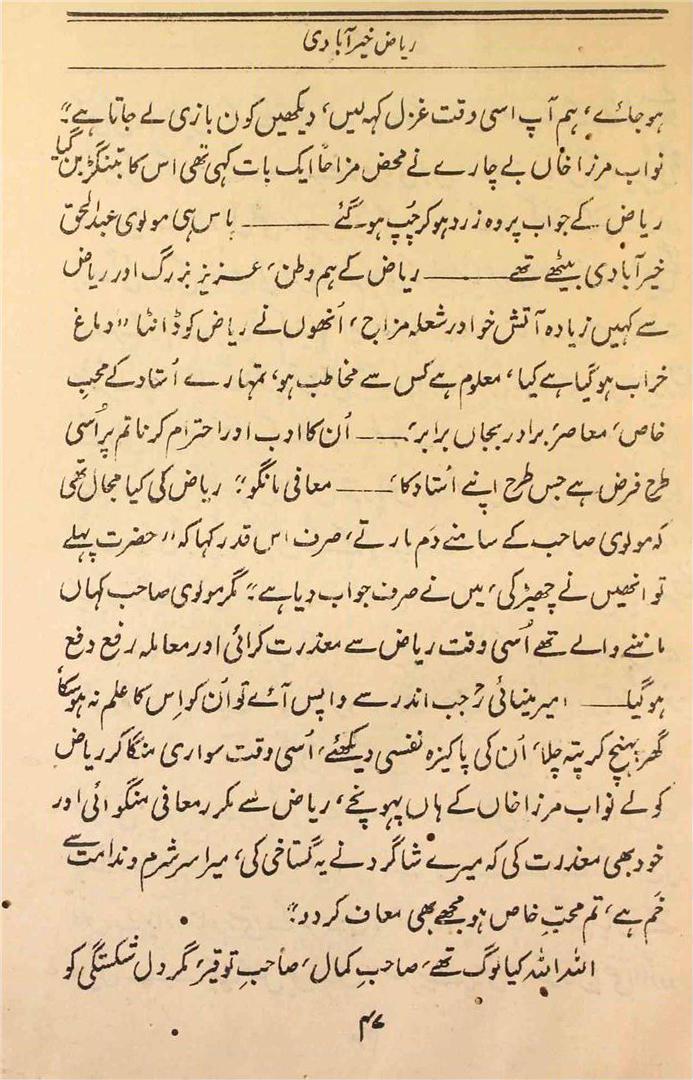 ریاض خیرآبادی
ہوجائے، ہم آپ اسی وقت غزل کہہ لیں، دیکھیں کون بازی لے جاتا ہے“
نواب مرزا خاں بے چارے نے محض مزاحاً ایک بات کہی تھی اس کا بتنگڑ بن گیا
ریاض کے جواب پر وہ زرد ہوکر چُپ ہوگئے ـــــــ پاس ہی مولوی عبدالحق
خیرآبادی بیٹھے تھے ـــــــ ریاض کے ہم وطن، عزیز بزرگ اور ریاض
سے کہیں زیادہ آتش خو اور شعلہ مزاج، اُنھوں نے ریاض کو ڈانٹا ”دماغ
خراب ہوگیا ہے کیا، معلوم ہے کس سے مخاطب ہو، تمہارے اُستاد کے محبِ
خاص، معاصر، برادر بجاں برابر، ــــ اُن کا ادب اور احترام کرنا تم پر اُسی
طرح فرض ہے جس طرح اپنے اُستاد کا، ــــ معافی مانگو“ ریاض کی کیا مجال تھی
کہ مولوی صاحب کے سامنے دَم مارتے، صرف اس قدر کہا کہ ”حضرت پہلے
تو انھیں نے چھیڑ کی، میں نے صرف جواب دیا ہے“ مگر مولوی صاحب کہاں
ماننے والے تھے اُسی وقت ریاض سے معذرت کرائی اور معاملہ رفع دفع
ہوگیا ــــ امیر مینائیؒ جب اندر سے واپس آئے تو اُن کو اِس کا علم نہ ہوسکا
گھر پہنچ کر پتہ چلا، اُن کی پاکیزہ نفسی دیکھئے، اُسی وقت سواری منگاکر ریاض
کو لے نواب مرزا خاں کے ہاں پہونچے، ریاض سے مکرر معافی منگوائی اور
خود بھی معذرت کی کہ میرے شاگرد نے یہ گستاخی کی، میرا سر شرم و ندامت سے
خَم ہے، تم محبِّ خاص ہو مجھے بھی معاف کردو“
اللہ اللہ کیا لوگ تھے، صاحبِ کمال، صاحبِ توقیر، مگر دل شکستگی کو
۴۷